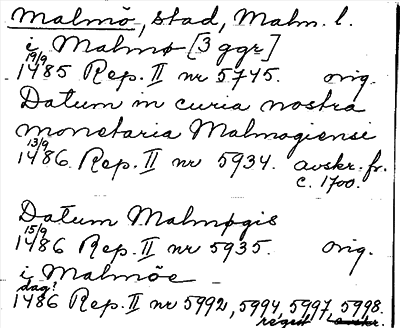 Malmö, stad, Malm. l.
i Malmø [3 ggr]
19/9
1485 Rep. II nr 5745. orig.
Datum in curia nostra
monetaria Malmogiensi
13/9
1486. Rep. II nr 5934. avskr. fr.
c. 1700.
Datum Malmøgis
15/9
1486 Rep. II nr 5935. orig.
i Malmöe
dag?
1486 Rep. II nr 5992, 5994, 5997, 5998.
regest avskr.